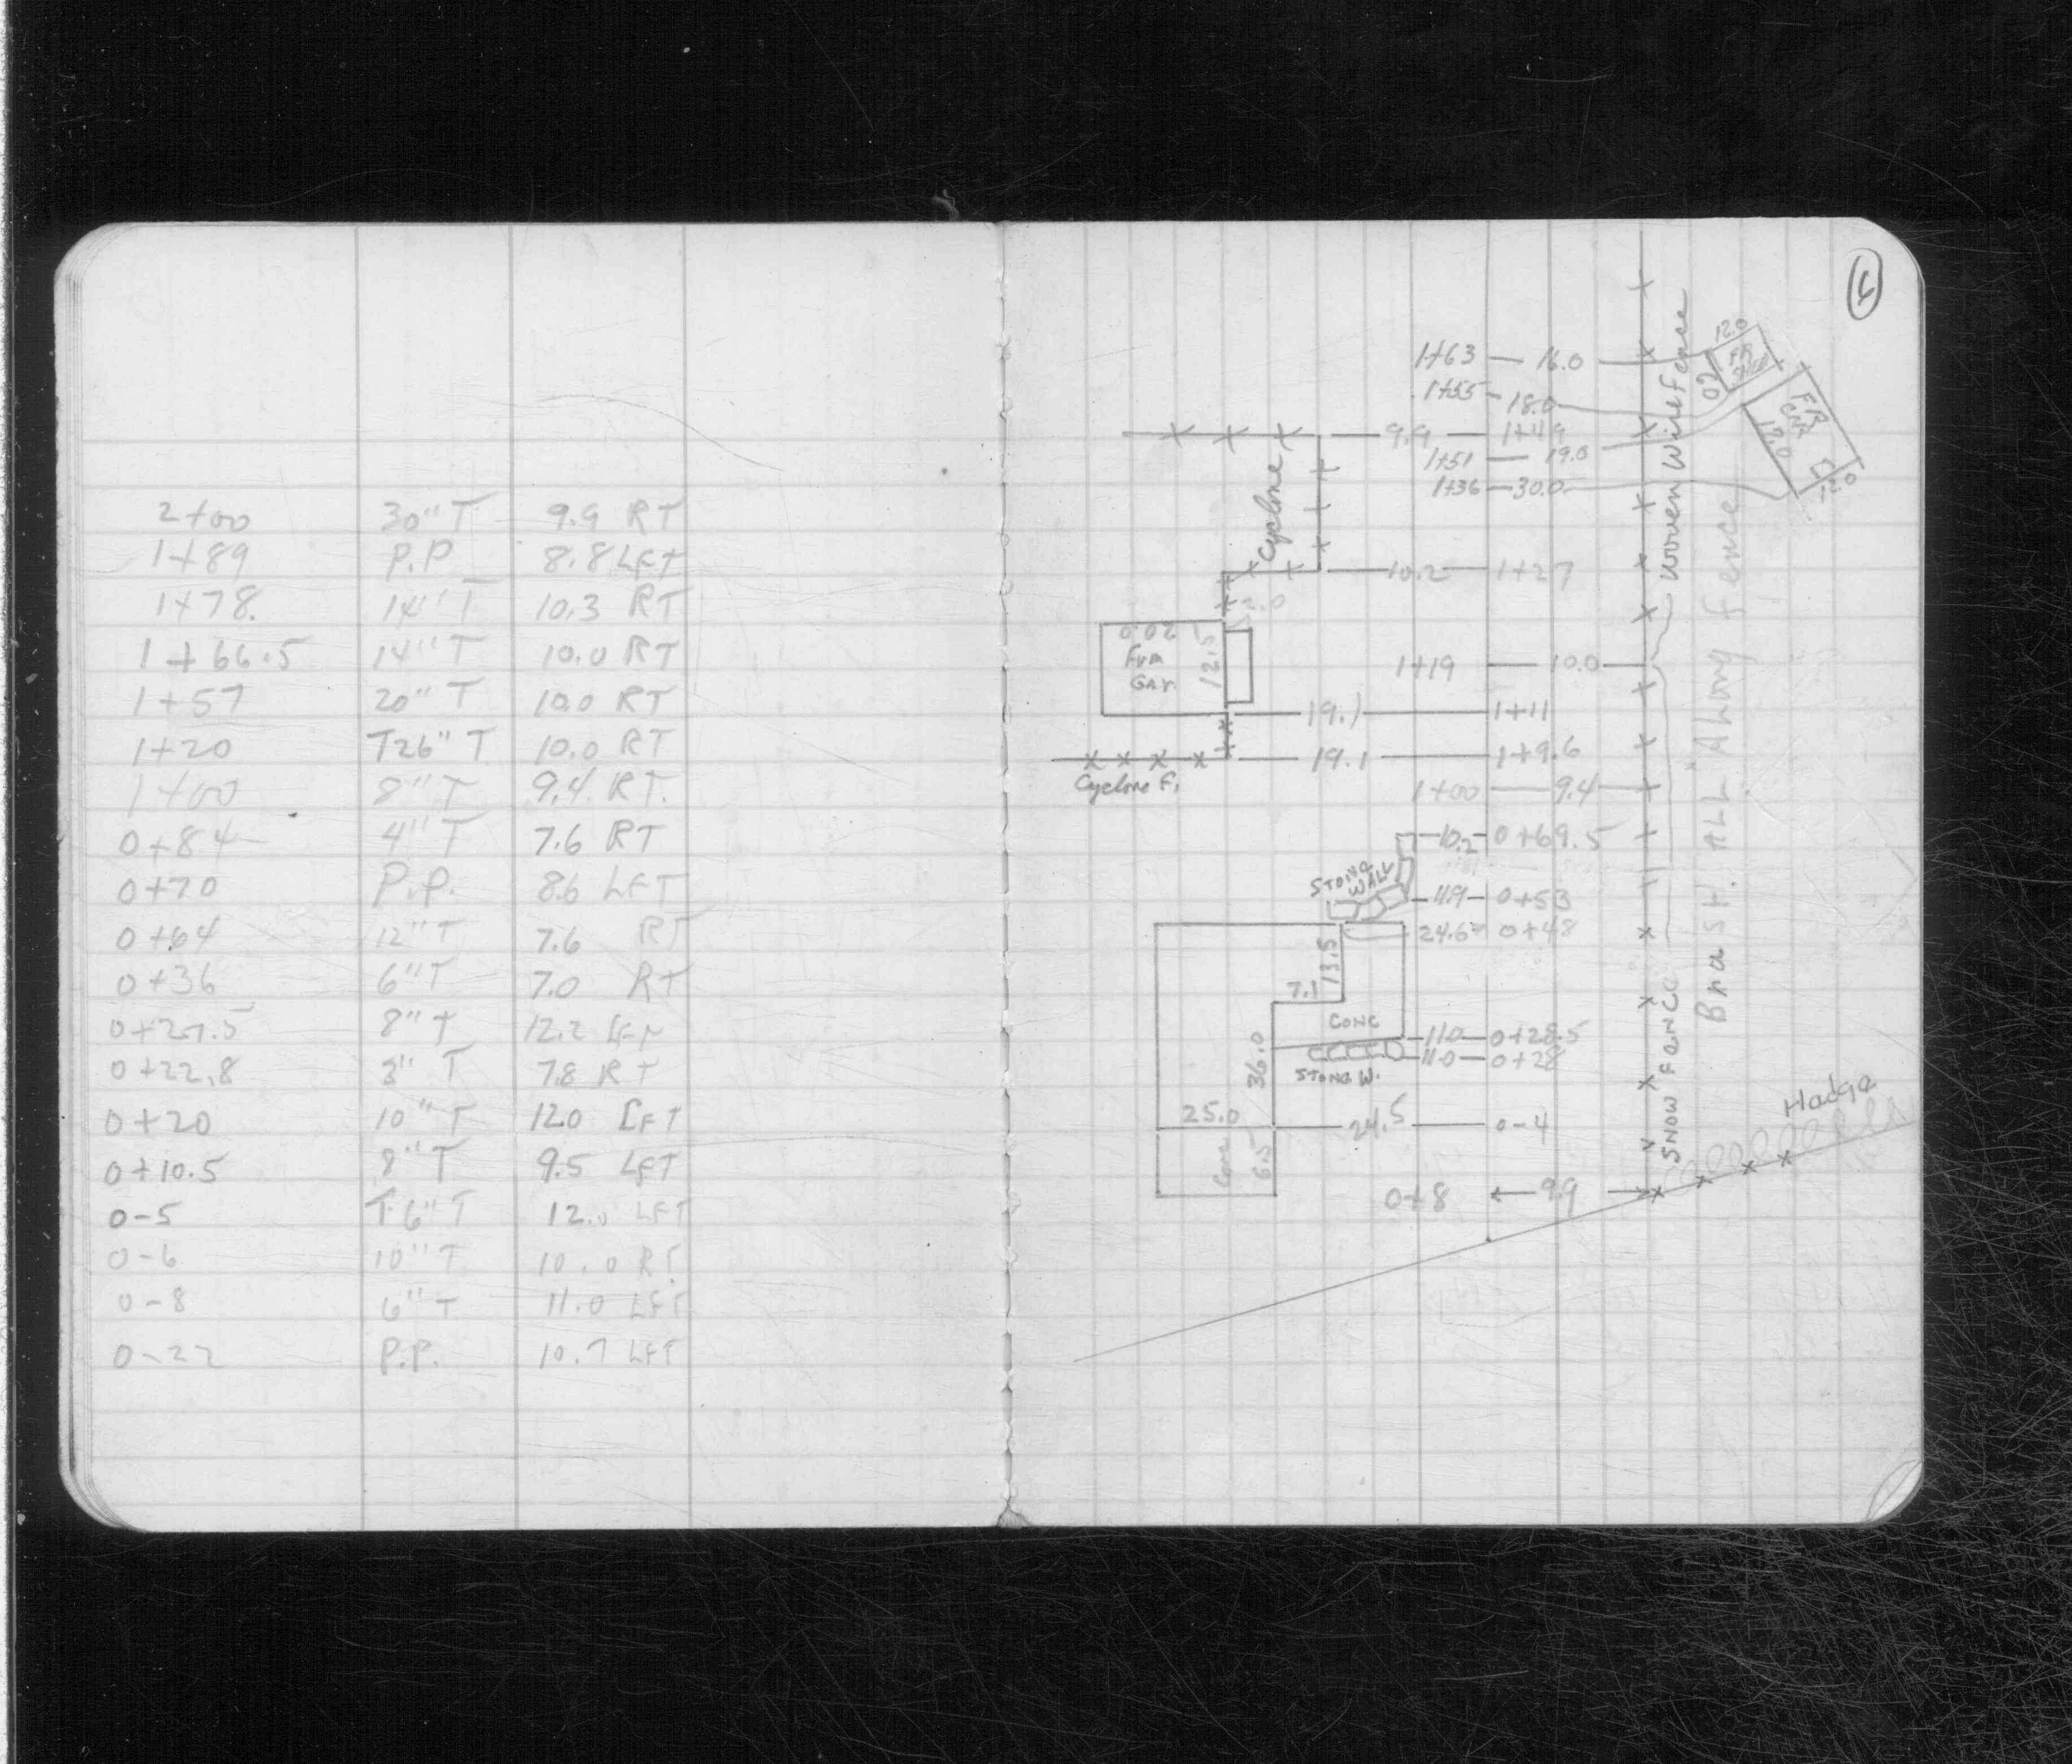 2+00 30" T 9.9 RT
1+89 P.P 8.8 LFT
1+78. 14" T 10.3 RT
1+66.5 14" T 10.0 RT
1+57 20" T 10.0 RT
1+20 T26" T 10.0 RT
1+00 8" T 9.4 RT.
0+84 4" T 7.6 RT
0+70 P.P. 8.6 LFT
0+64 12" T 7.6 RT
0+36 6" T 7.0 RT
0+27.5 8" T 12.2 LFT
0+22.8 T 7.8 RT
0+20 10" T 12.0 LFT
0+10.5 8" T 9.5 LFT
0-5 T 6" T 12.0 LFT
0-6 10" T 10.0 RT.
0-8 6" T 11.0 LFT
0-22 P.P. 10.7 LFT
12.0
1+63 16.0
FR
1+55 18.0
FR
17.0
9.9 1+49
1+51 19.0
1+36 30.0
12.0
Cyclone
Woven Wire Fence
10.2 1+27
12.5
GAr.
1+19 10.0
19.1 1+11
19.1 1+9.6
Cyclone F.
1+00 9.4
10.2 0+69.5
STONE WALL
11.9 0+53
24.6 0+48
13.5
7.1
CONC
11.0 0+28.5
11.0 0+28
STONE W.
36.0
25.0
24.5 0-4
Conc 6.5
0+8 9.9
SNOW FENCE
BrusH ALL Along fence
Hadge